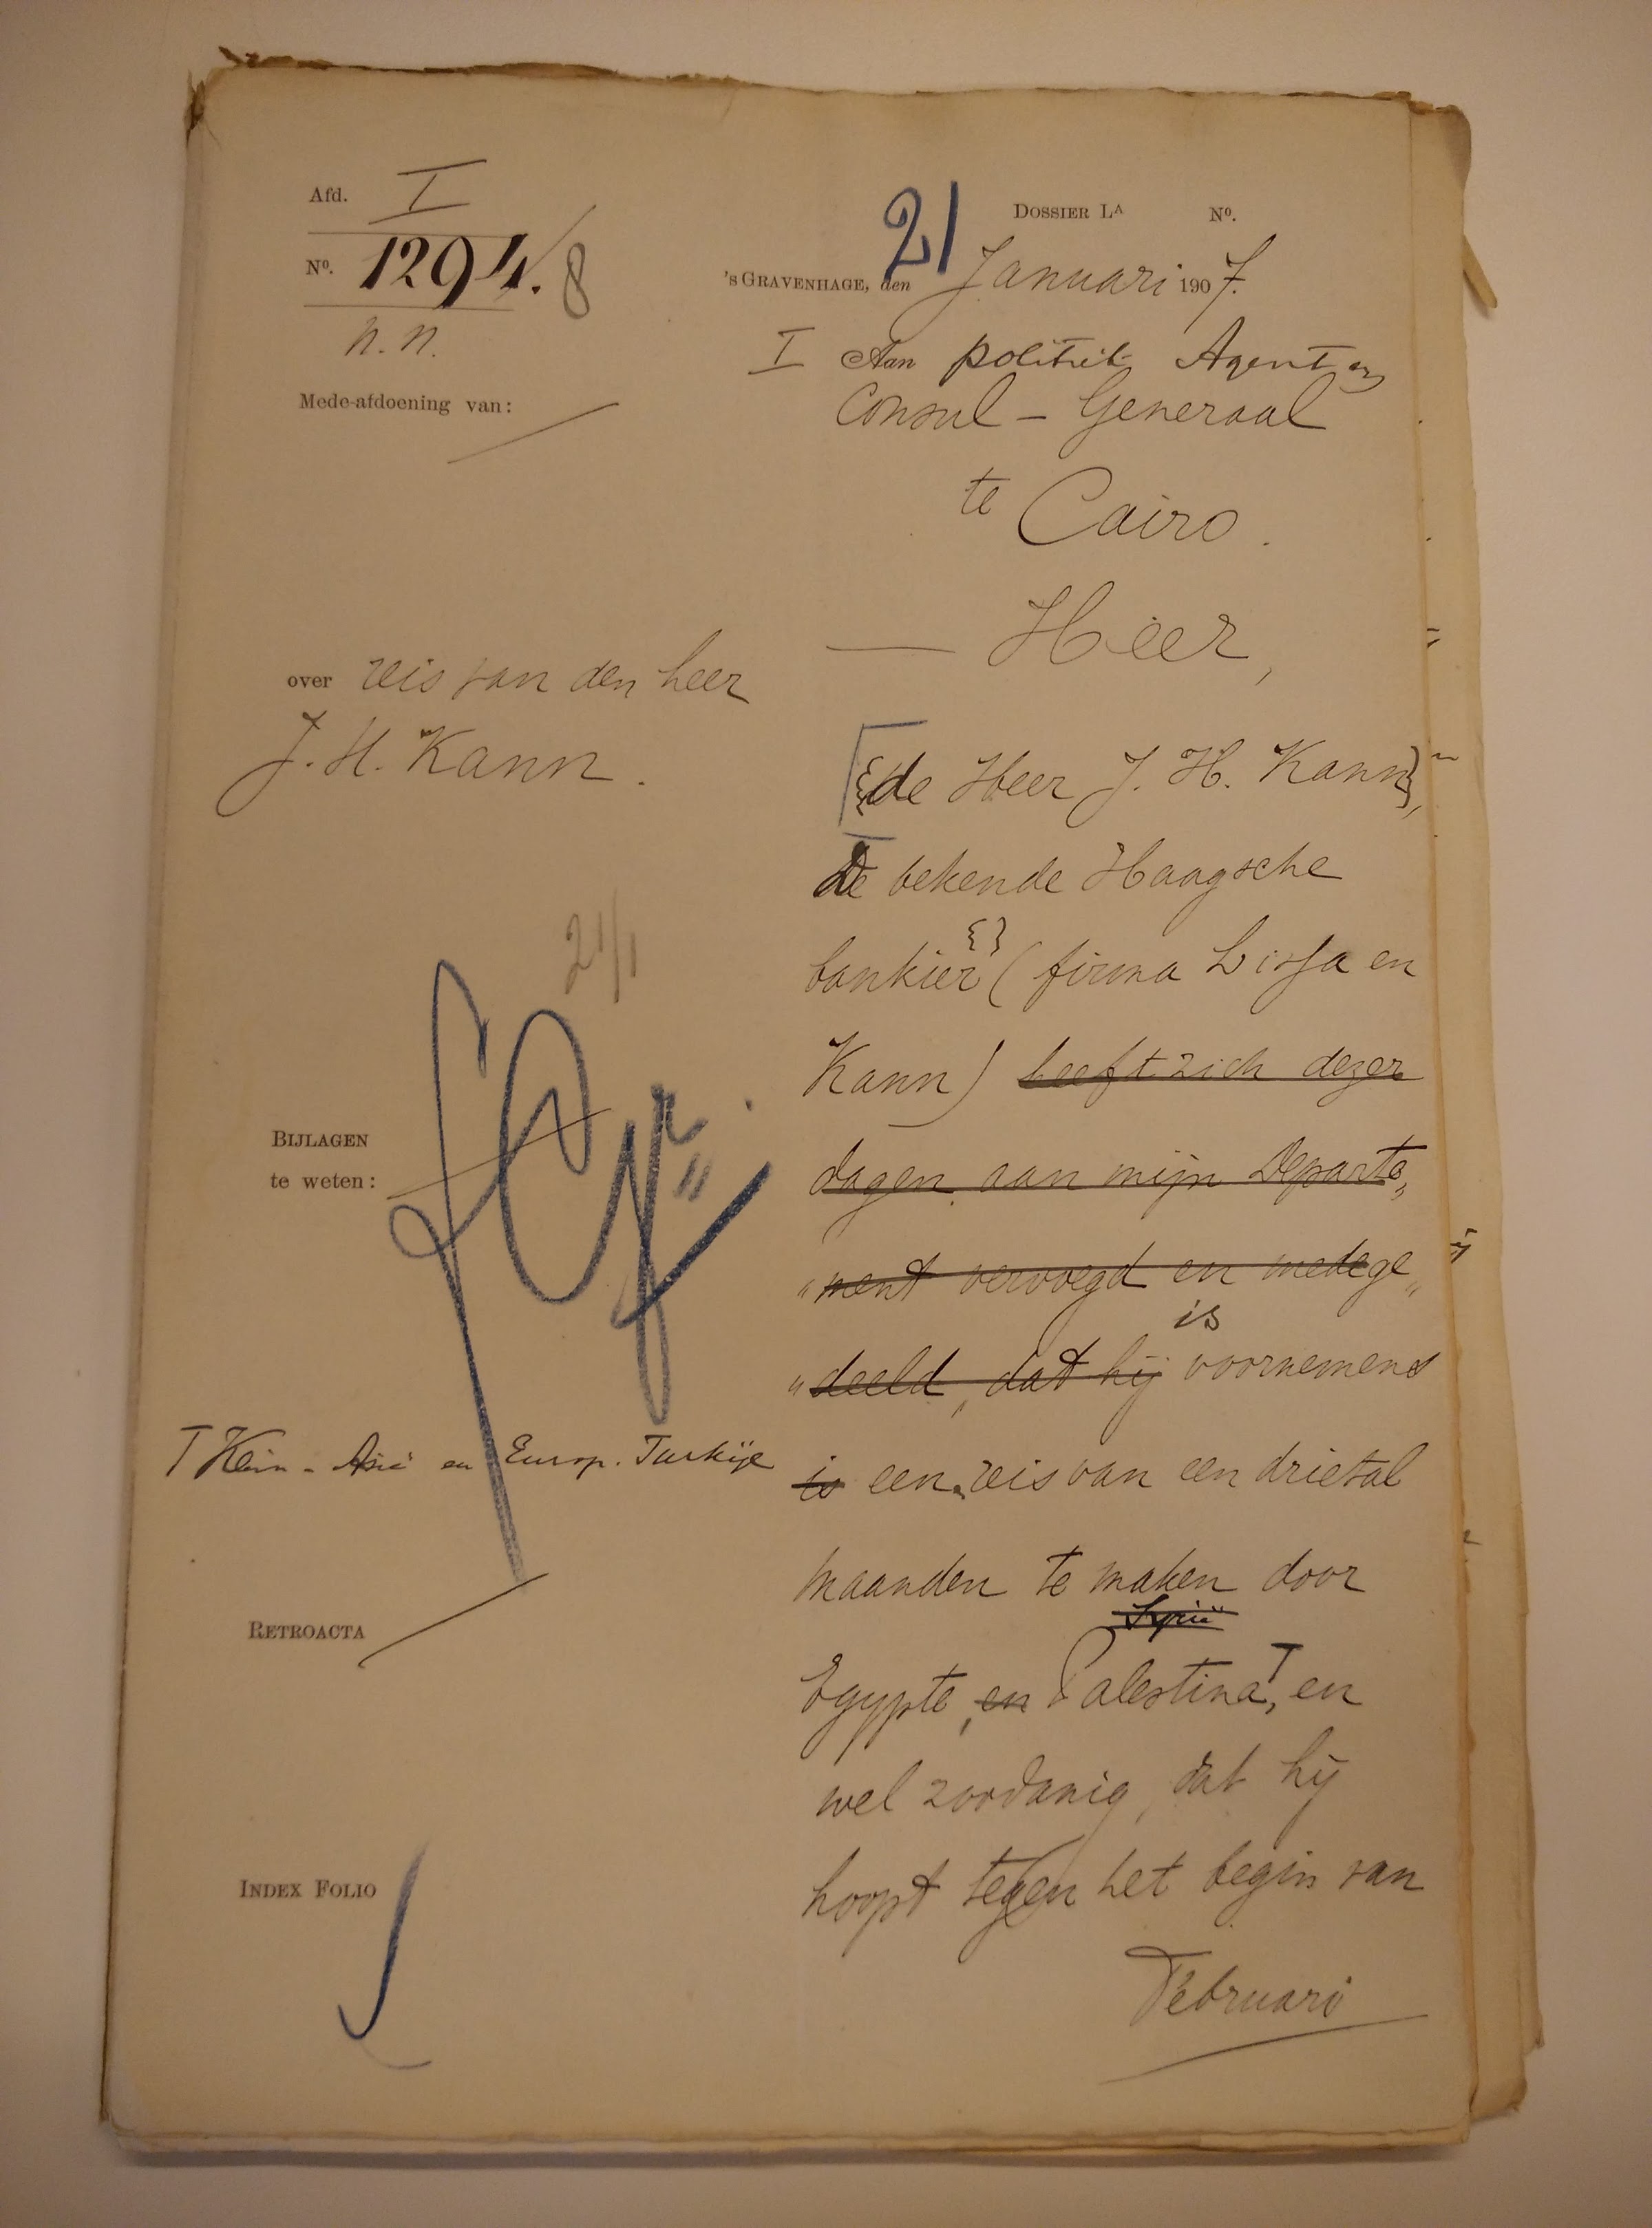 Afd. I
Nº. 1294./8
n.n.
Mede-afdoening van:
DOSSIER Lᴬ Nº.
'sGRAVENHAGE, den 21 Januari 1907.
I Aan politiek Agent en
Consul-Generaal
te Cairo.
Heer,
over reis van den heer
J. H. Kann.
{de Heer J. H. Kann},
De bekende Haagsche
bankier {} (firma Lissa en
Kann) heeft zich dezer
dagen aan mijn Departe„
„ment vervoegd en medege„
is
„deeld, dat hij voornemens
is een reis van een drietal
maanden te maken door
Syrië
Egypte, en Palestina, T en
wel zoodanig, dat hij
hoopt tegen het begin van
Februari
21/1
BIJLAGEN
te weten:
T Klein-Azië en Europ. Turkije
RETROACTA
INDEX FOLIO